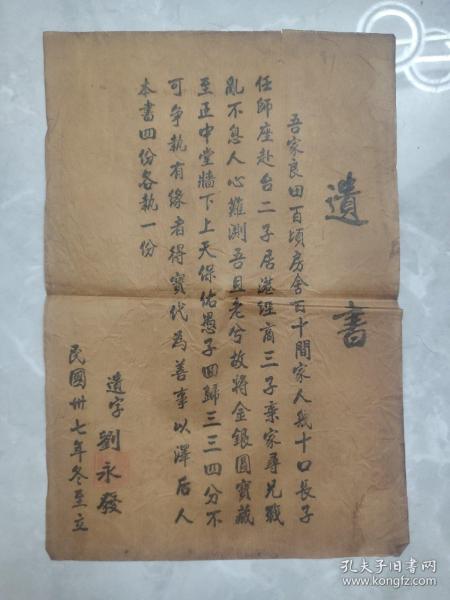 遺書
吾家良田百頃房舍百十間家人幾十口長子
任師座赴台二子居港經商三子棄家尋兄戰
亂不息人心難測吾且老兮故將金銀圓寶藏
至正中堂牆下上天保佑愚子四歸三三四分不
可争執有緣者得寳代為善事以澤后人
本書四份各執一份
遺字劉永發
民國卅七年冬至立
孔夫子旧书网
www.kongfz.com